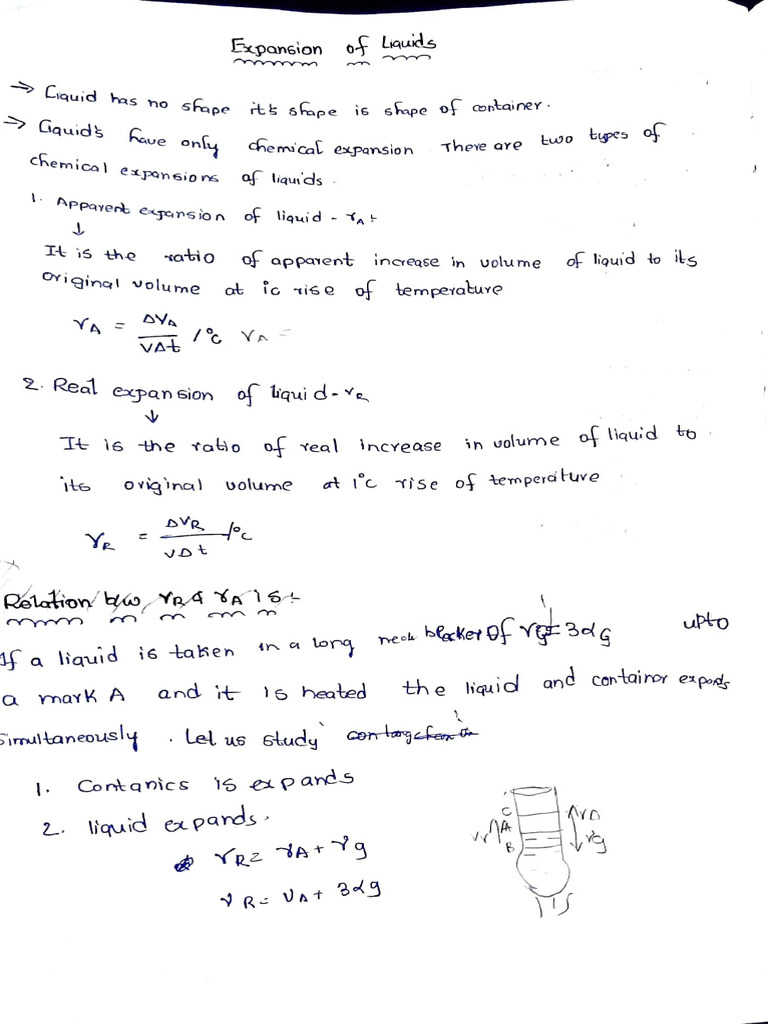 Expansion of Liquids
→ Liquid has no shape it's shape is shape of container.
→ Liquid's have only chemical expansion There are two types of
chemical expansions of liquids.
1. Apparent expansion of liquid - γA :-
↓
It is the ratio of apparent increase in volume of liquid to its
original volume at 1c rise of temperature
γA = ΔVA / VΔt /°C γA =
2. Real expansion of liquid - γR
↓
It is the ratio of real increase in volume of liquid to
its original volume at 1°c rise of temperature
γR = ΔVR / VΔt /°C
Relation b/w γR & γA is :-
If a liquid is taken in a long neck of γg = 3αG upto
a mark A and it is heated the liquid and container expands
simultaneously. Let us study
1. Contanics is expands
2. liquid expands.
γR = γA + γg
γR = γA + 3αg
C
A
B
γg